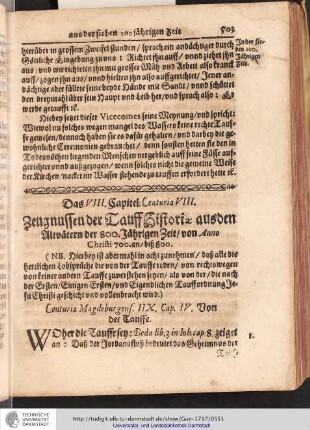 aus der sieben 700 jährigen Zeit 503
hierüber in grossem Zweifel stunden / sprach ein andächtiger durch
Göttliche Eingebung zu uns : Richtet ihn auff / vnnd ziehet ihn
aus ; vnd wir richteten ihn mit grosser Müh vnd Arbeit also kranck
auff / zogen ihn aus / vnnd hielten ihn also auffgerichtet / Jener an-
dächtige aber füllete seine beyde Hände mit Sand / vnnd schüttet
den dreymahl über sein Haupt vnd Leib her / vnd sprach also : Es
werde getaufft rc.
Hierbey setzet dieser Vicecomes seine Meynung / vnd spricht:
Wiewol nu solches wegen mangel des Wassers keine rechte Tauf-
fe gewesen / dennoch haben sie es dafür gehalten / vnd darbey die ge-
wöhnliche Ceremonien gebrauchet / denn sonsten hetten sie den in
Todesnöthen liegenden Menschen vergeblich auff seine Füsse auff-
gerichtet vnnd außgezogen / wenn solches nicht die gemeine Weise
der Kirchen / nacket im Wasser stehende zu tauffen erfordert hette rc.
Das VIII. Capitel. Centuria VIII.
Zeugnussen der Tauff Historiæ aus den
Altvätern der 800. Jährigen Zeit / von Anno
Christi 700. an / biß 800.
( NB. Hierbey ist abermahl in acht zunehmen / daß alle die
herrlichen Lobsprüche die von der Tauffe reden / von rechtswegen
von keiner andern Tauffe zuverstehen seyen / als von der / die nach
der Ersten / Einigen Ersten / vnd Eigendlichen Tauffordnung Je-
su Christi geschicht vnd vollenbracht wird.)
Centuria Magdeburgens. IIX. Cap. IV. Von
der Tauffe.
WOher die Tauffe sey : Beda lib. 3 in Iob. cap. 8. zeiget
an : Daß der Jordansfluß bedeutet das Geheimnus der
1.
TECHNISCHE
UNIVERSITÄT
DARMSTADT
http://tudigit.ulb.tu-darmstadt.de/show/Gue-1737/0551
Universitäts- und Landesbibliothek Darmstadt